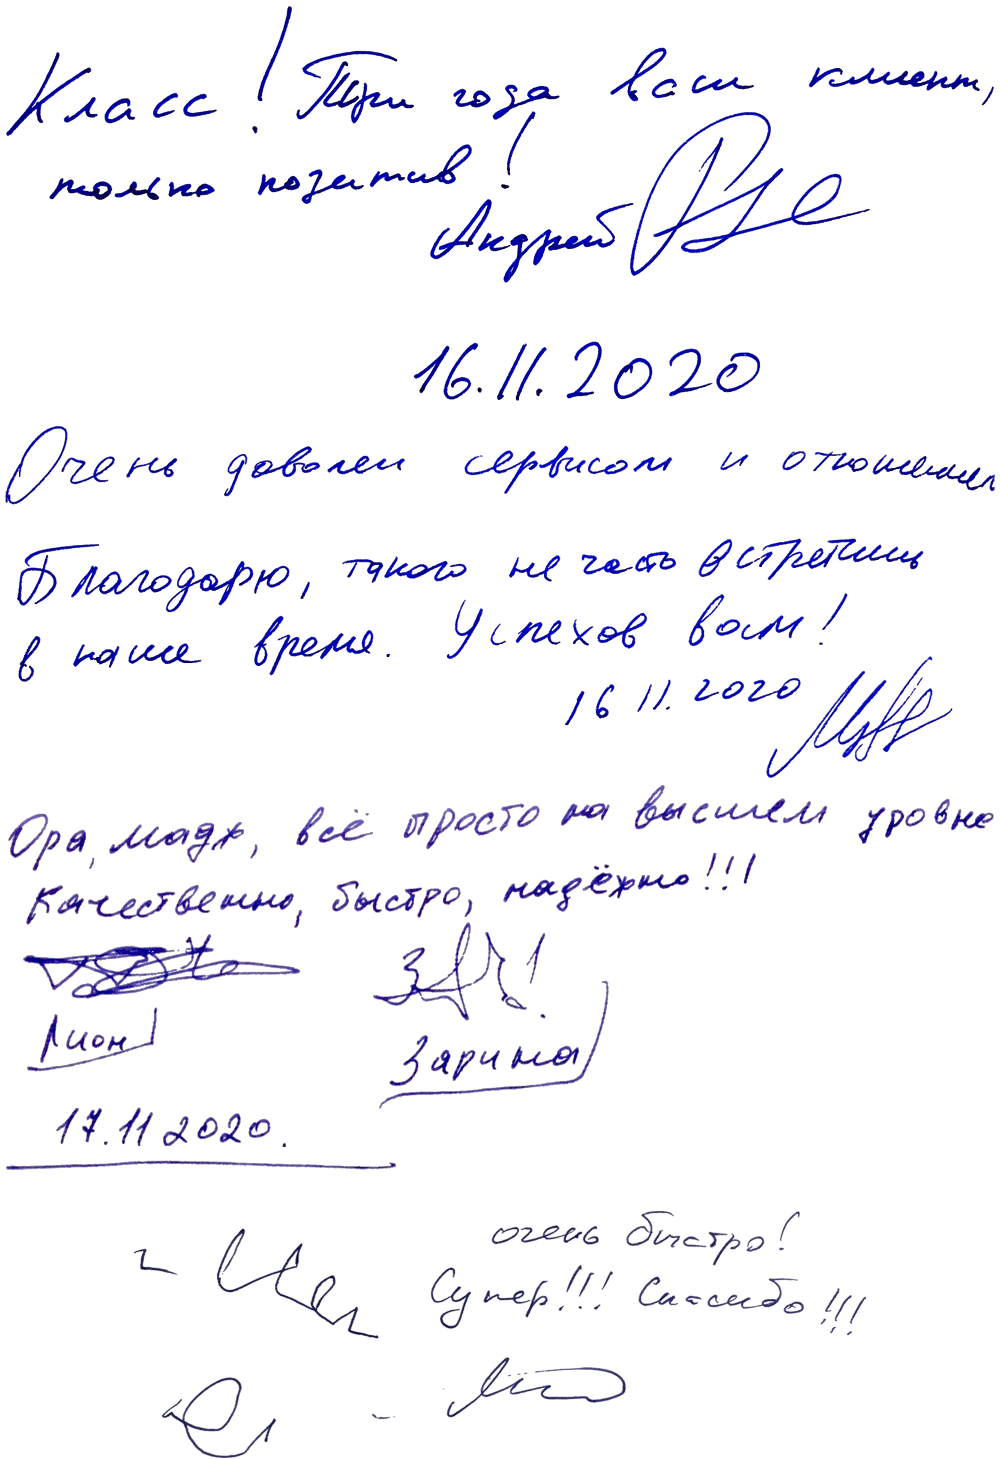 Класс! Три года ваш клиент,
только позитив!
Андрей
16.11.2020
Очень доволен сервисом и отношением
Благодарю, такого не часто встретишь
в наше время. Успехов вам!
16 11. 2020
Ора, мадх, всё просто на высшем уровне
Качественно, быстро, надёжно!!!
Лион
Зарина
17.11 2020.
очень быстро!
Супер!!! Спасибо!!!